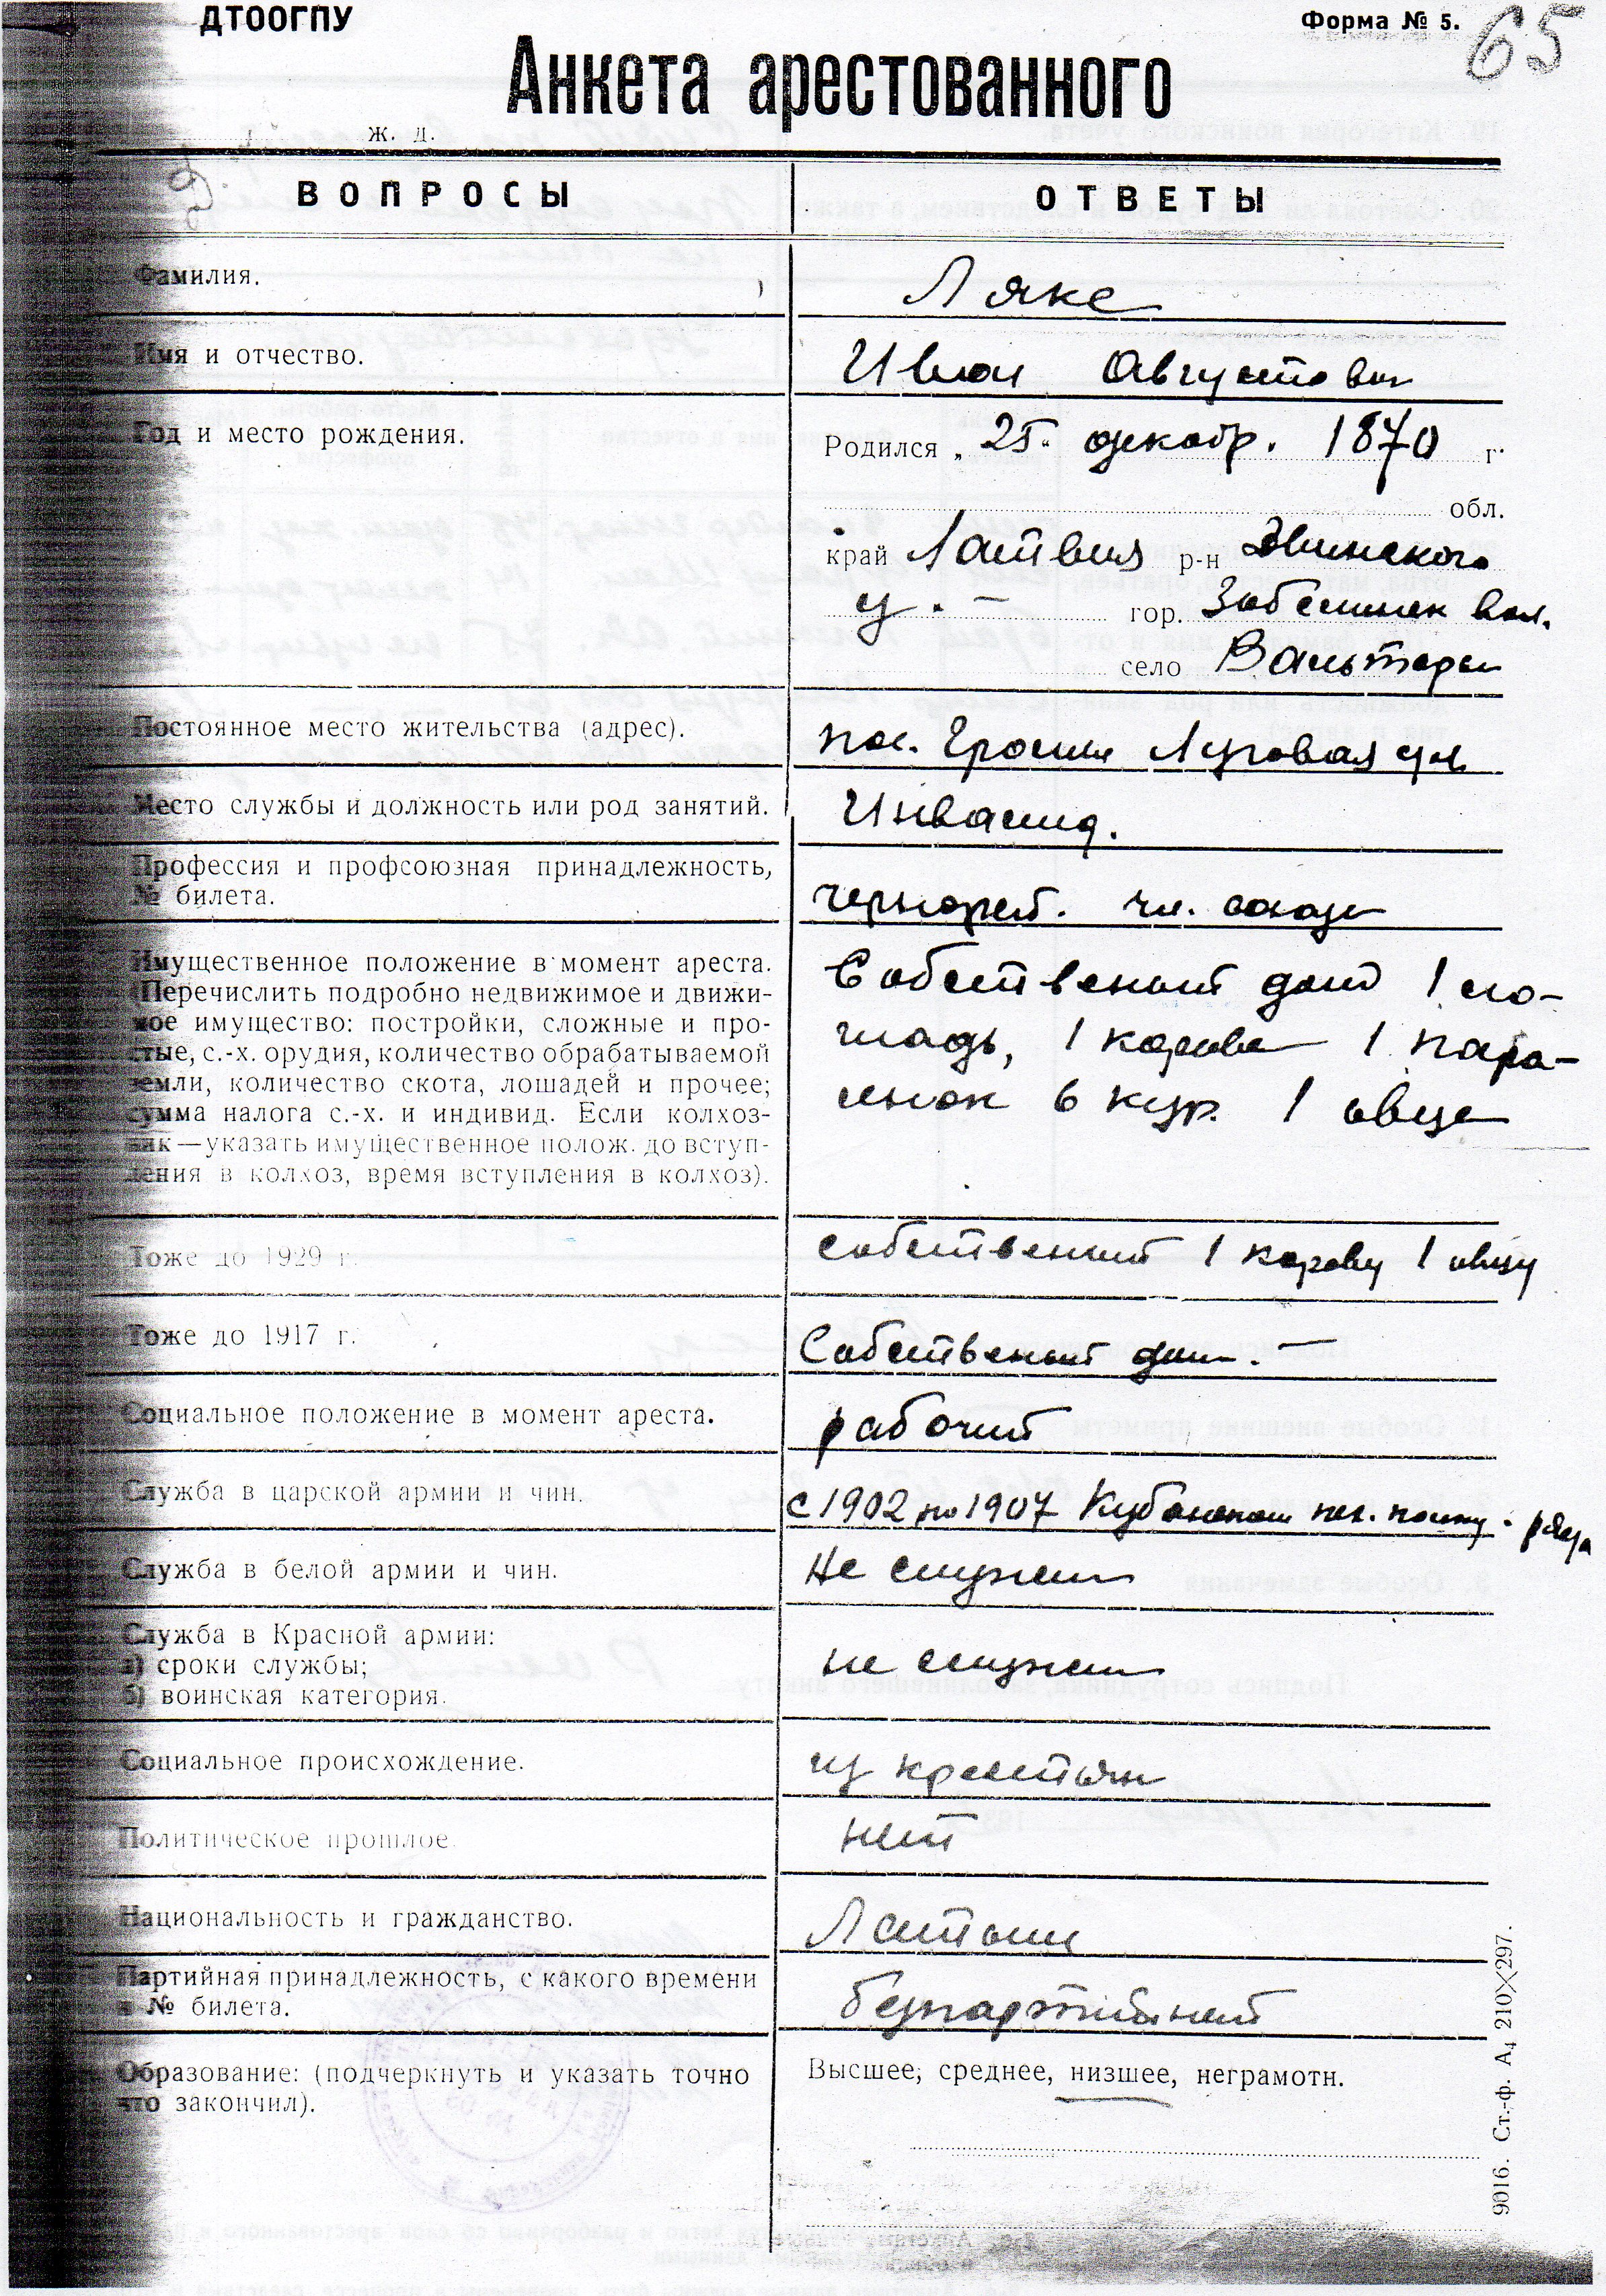 ДТООГПУ
Форма № 5.
65
Анкета арестованного
ж. д.
ВОПРОСЫ
ОТВЕТЫ
Фамилия.
Ляке
Имя и отчество.
Иван Августович
Год и место рождения.
Родился „ 25 декабр. 1870 г.
обл.
край Латвия р-н Двинского
у. — гор. вол.
село Вальтеры
Постоянное место жительства (адрес).
пос. Луговая ул
Место службы и должность или род занятий.
Инвалид.
Профессия и профсоюзная принадлежность,
№ билета.
чернораб. чл. союза
Имущественное положение в момент ареста.
(Перечислить подробно недвижимое и движи-
мое имущество: постройки, сложные и про-
стые, с.-х. орудия, количество обрабатываемой
земли, количество скота, лошадей и прочее;
сумма налога с.-х. и индивид. Если колхоз-
ник—указать имущественное полож. до вступ-
ления в колхоз, время вступления в колхоз).
Собственый дом 1 ло-
шадь, 1 корова 1 паро-
сенок 6 кур. 1 овца
Тоже до 1929 г.
собственый 1 корову 1 овцу
Тоже до 1917 г.
Собственый дом. —
Социальное положение в момент ареста.
рабочий
Служба в царской армии и чин.
с 1902 по 1907 Кубанском пех. полку. ряд.
Служба в белой армии и чин.
Не служил
Служба в Красной армии:
а) сроки службы;
б) воинская категория.
не служил
Социальное происхождение.
из крестьян
Политическое прошлое
нет
Национальность и гражданство.
Латыш
Партийная принадлежность, с какого времени
и № билета.
безпартийный
Образование: (подчеркнуть и указать точно
что закончил).
Высшее, среднее, низшее, неграмотн.
9016. Ст.-ф. А₄ 210×297.